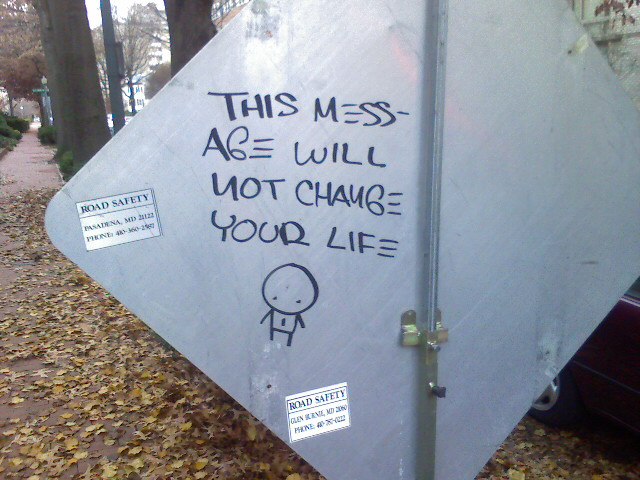 THIS MESS-
AGE WILL
NOT CHANGE
YOUR LIFE
ROAD SAFETY
PASADENA, MD 21122
PHONE: 410-360-2587
ROAD SAFETY
GLEN BURNIE, MD 21060
PHONE: 410-787-0222